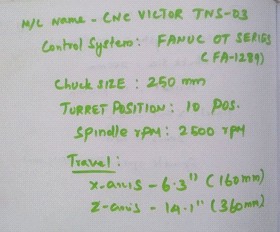 M/C Name - CNC VICTOR TNS-D3
Control System: FANUC OT SERIES
(FA-1289)
Chuck SIZE : 250 mm
TURRET POSITION: 10 POS.
Spindle rPM: 2500 rPM
Travel :
x-axis - 6.3" (160mm)
Z-axis - 14.1" (360mm)